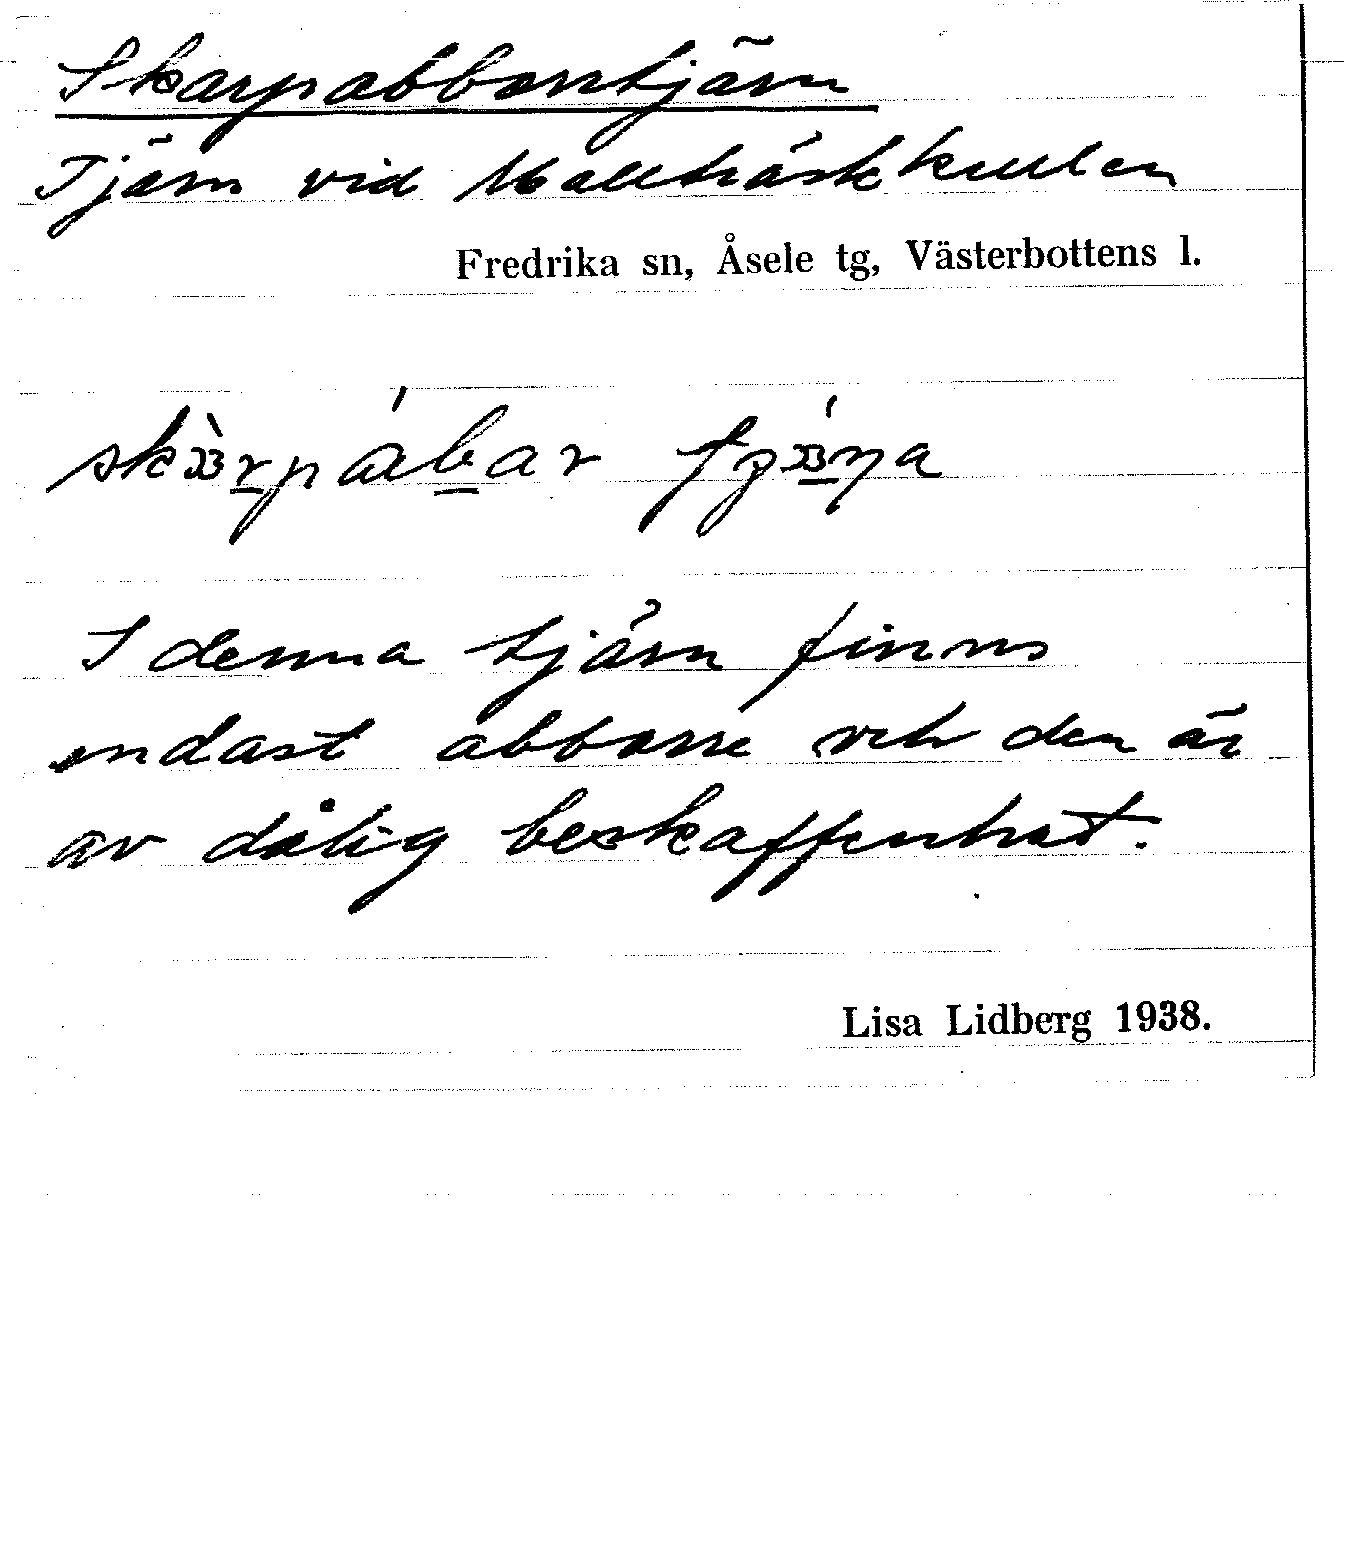 Skarpabborrtjärn
Tjärn vid Mallträskkullen
Fredrika sn, Åsele tg, Västerbottens l.
I denna tjärn finns
endast abborre och den är
av dålig beskaffenhet.
Lisa Lidberg 1938.